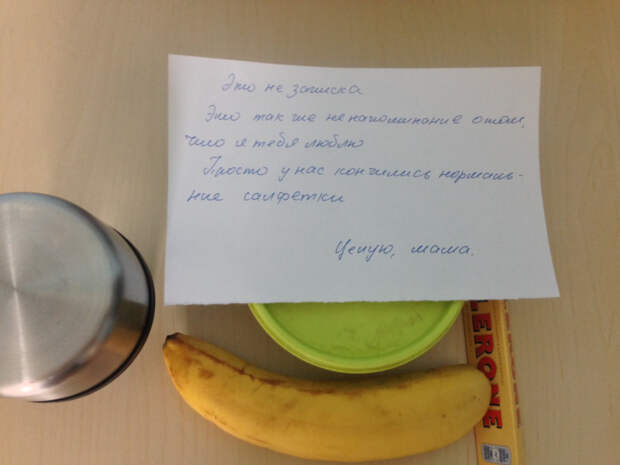 Это не записка
Это так же не напоминание о том,
что я тебя люблю
Просто у нас кончились нормаль-
ные салфетки
Целую, мама.
LERONE